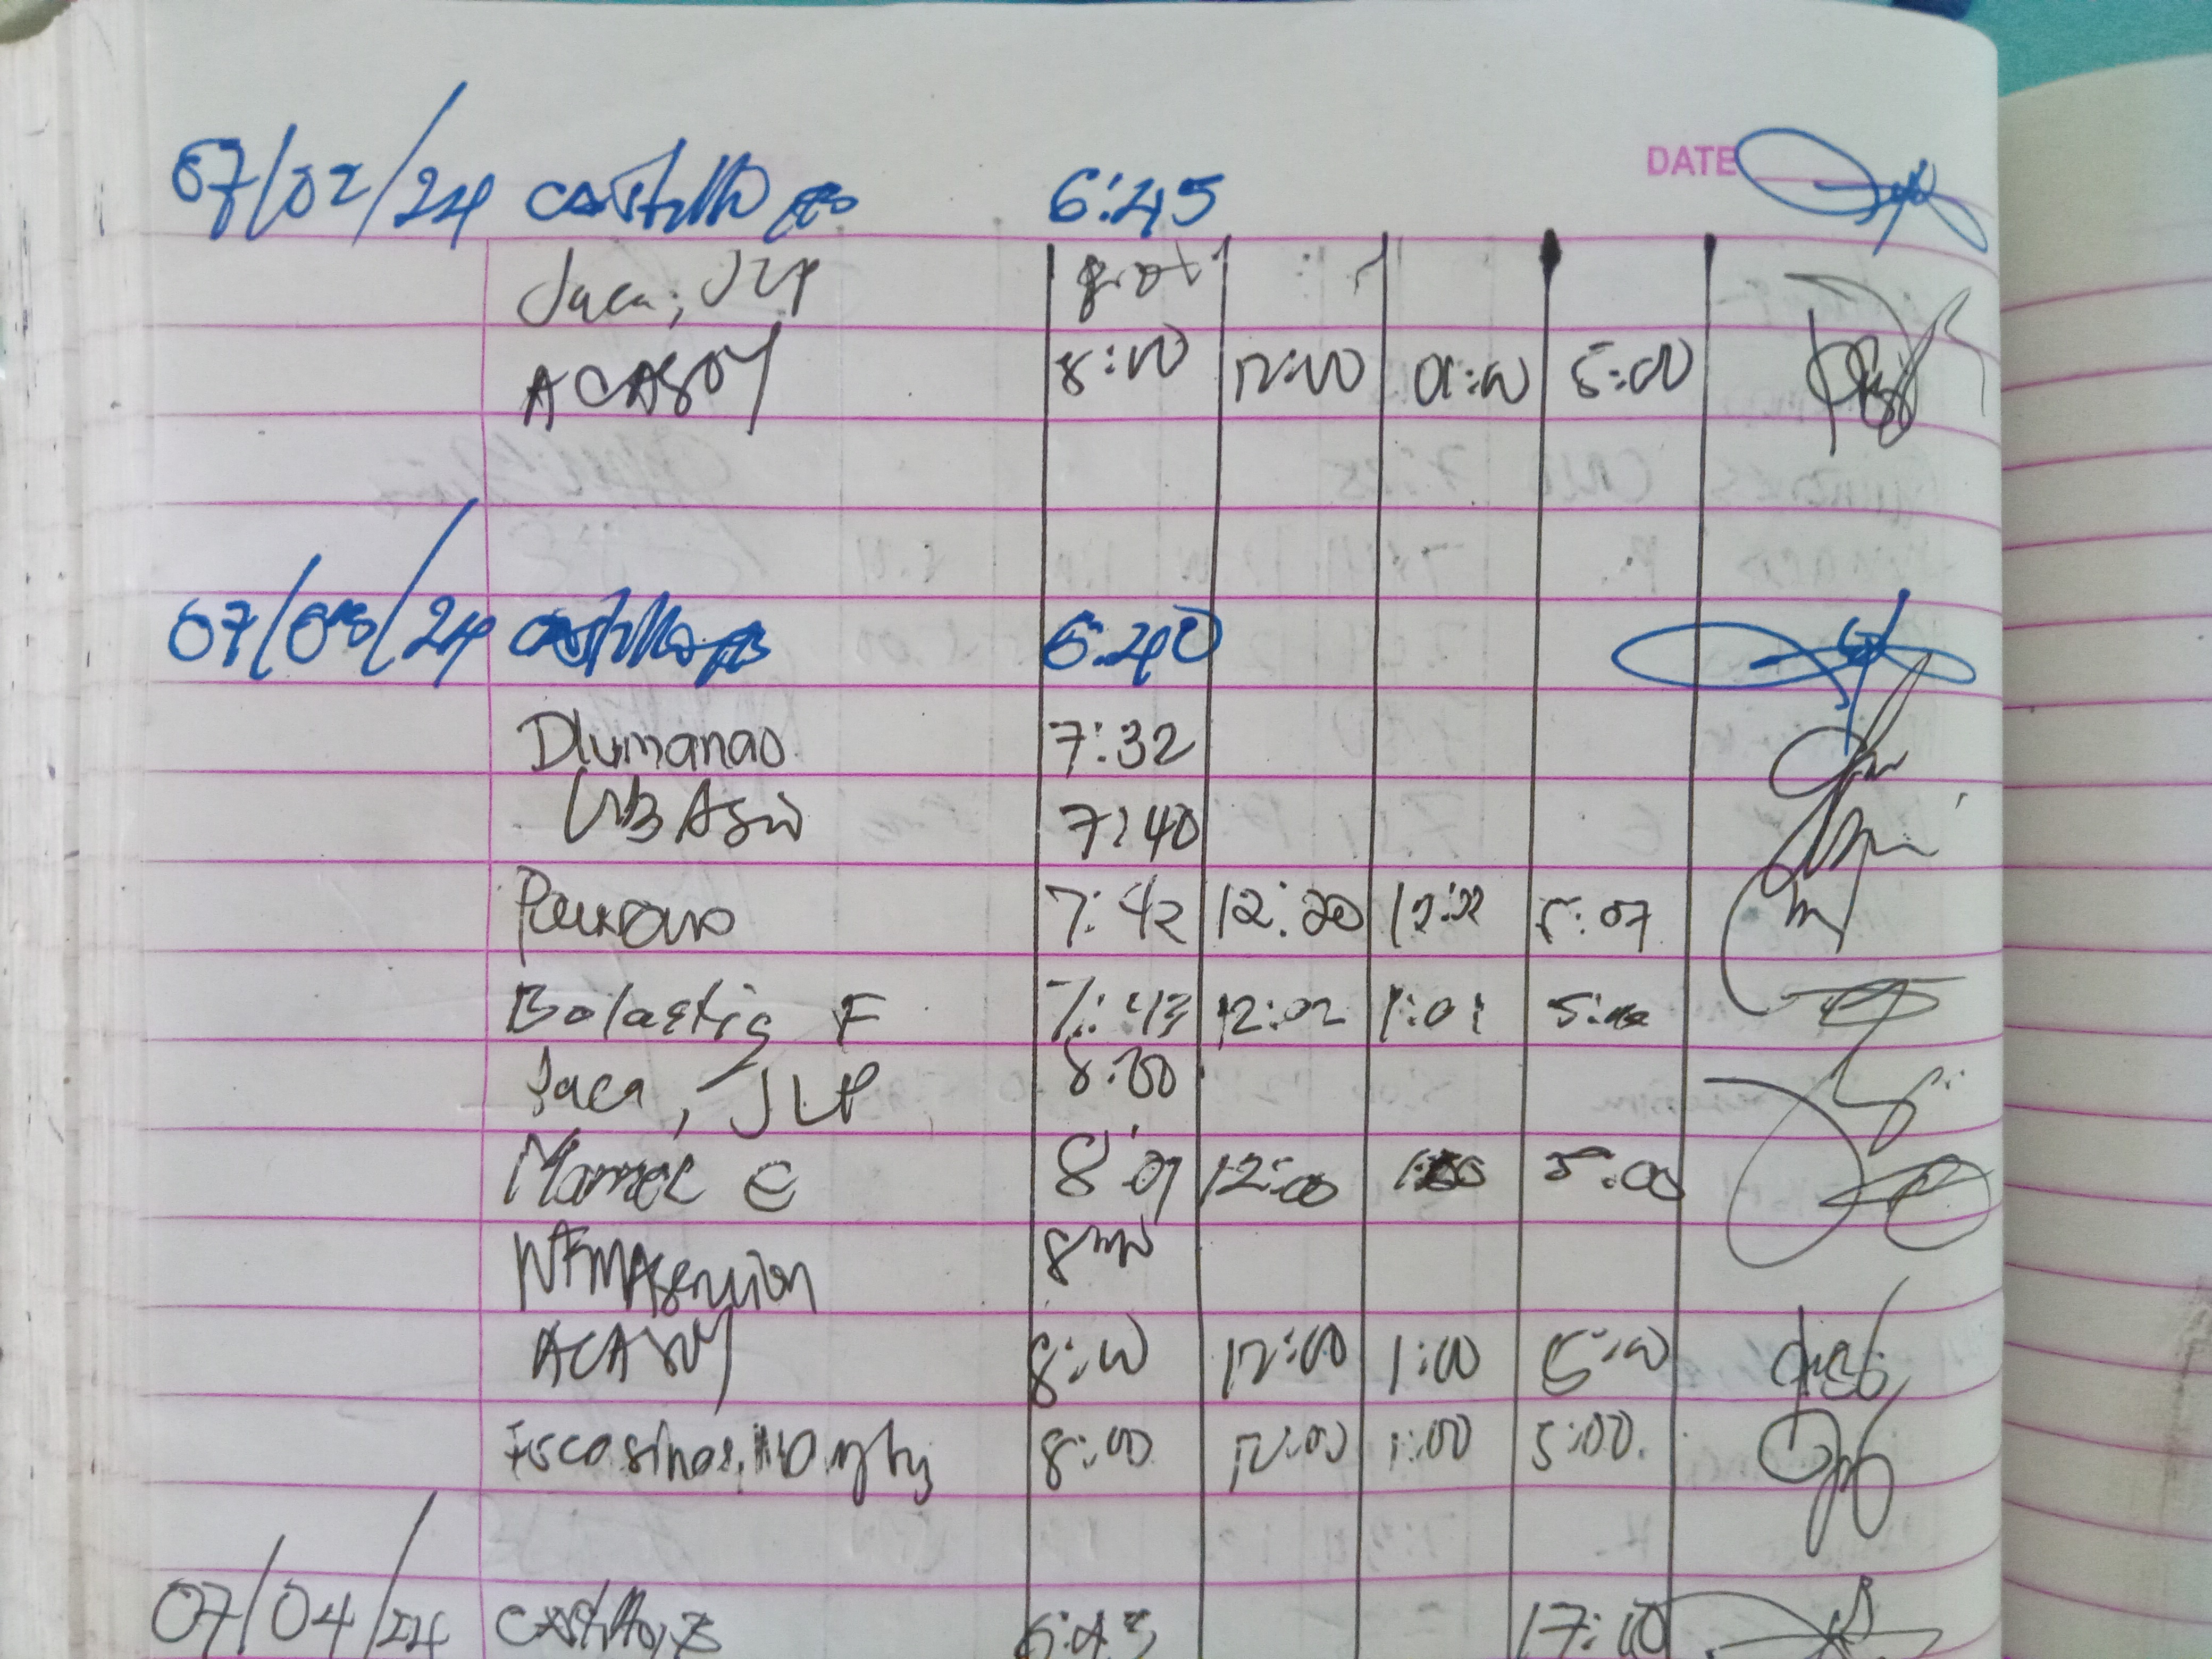 DATE
07/02/24 Castillo 6:45
Jaca, JLP 8:01
ACASOY 8:00 12:00 01:00 5:00
07/03/24 Castillo 6:40
Dlumanao 7:32
7:40
7:42 12:20 12:22 5:07
Bolastig F 7:43 12:02 1:01 5:00
Jaca, JLP 8:00
C 8:09 12:00 1:00 5:00
NFMAsencion
ACASOY 8:00 12:00 1:00 5:00
Escasinas, 8:00 12:00 1:00 5:00
07/04/24 Castillo 6:43 17:10